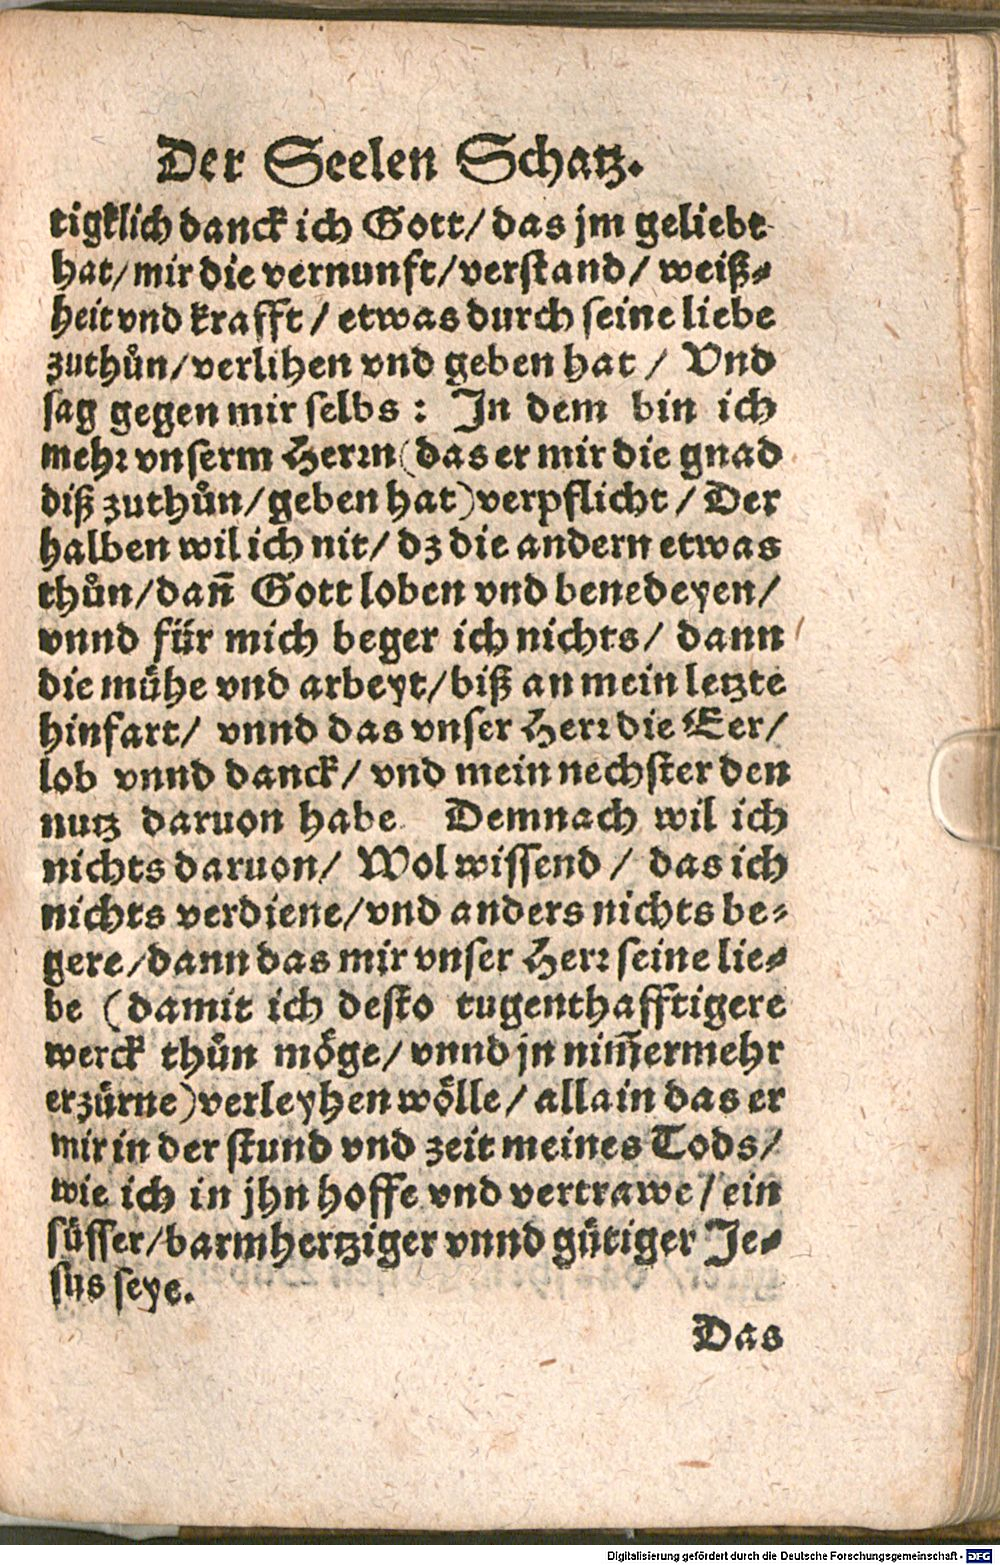 Der Seelen Schatz.
tigklich danck ich Gott/ das jm geliebt
hat/mir die vernunft/verstand/ weiß-
heit vnd krafft/ etwas durch seine liebe
zuthůn/verlihen vnd geben hat / Vnd
sag gegen mir selbs : In dem bin ich
mehr vnserm Herrn (das er mir die gnad
diß zuthůn/geben hat) verpflicht / Der
halben wil ich nit/ dz die andern etwas
thůn/dañ Gott loben vnd benedeyen/
vnnd für mich beger ich nichts/ dann
die mühe vnd arbeyt/biß an mein letzte
hinfart/ vnnd das vnser Herr die Eer/
lob vnnd danck/ vnd mein nechster den
nutz daruon habe. Demnach wil ich
nichts daruon/ Wol wissend / das ich
nichts verdiene/vnd anders nichts be-
gere/dann das mir vnser Herr seine lie-
be (damit ich desto tugenthafftigere
werck thůn möge/ vnnd jn nim̃ermehr
erzürne) verleyhen wölle/ allain das er
mir in der stund vnd zeit meines Tods/
wie ich in jhn hoffe vnd vertrawe/ein
süsser/barmhertziger vnnd gütiger Je-
sus seye.
Das
Digitalisierung gefördert durch die Deutsche Forschungsgemeinschaft - DFG